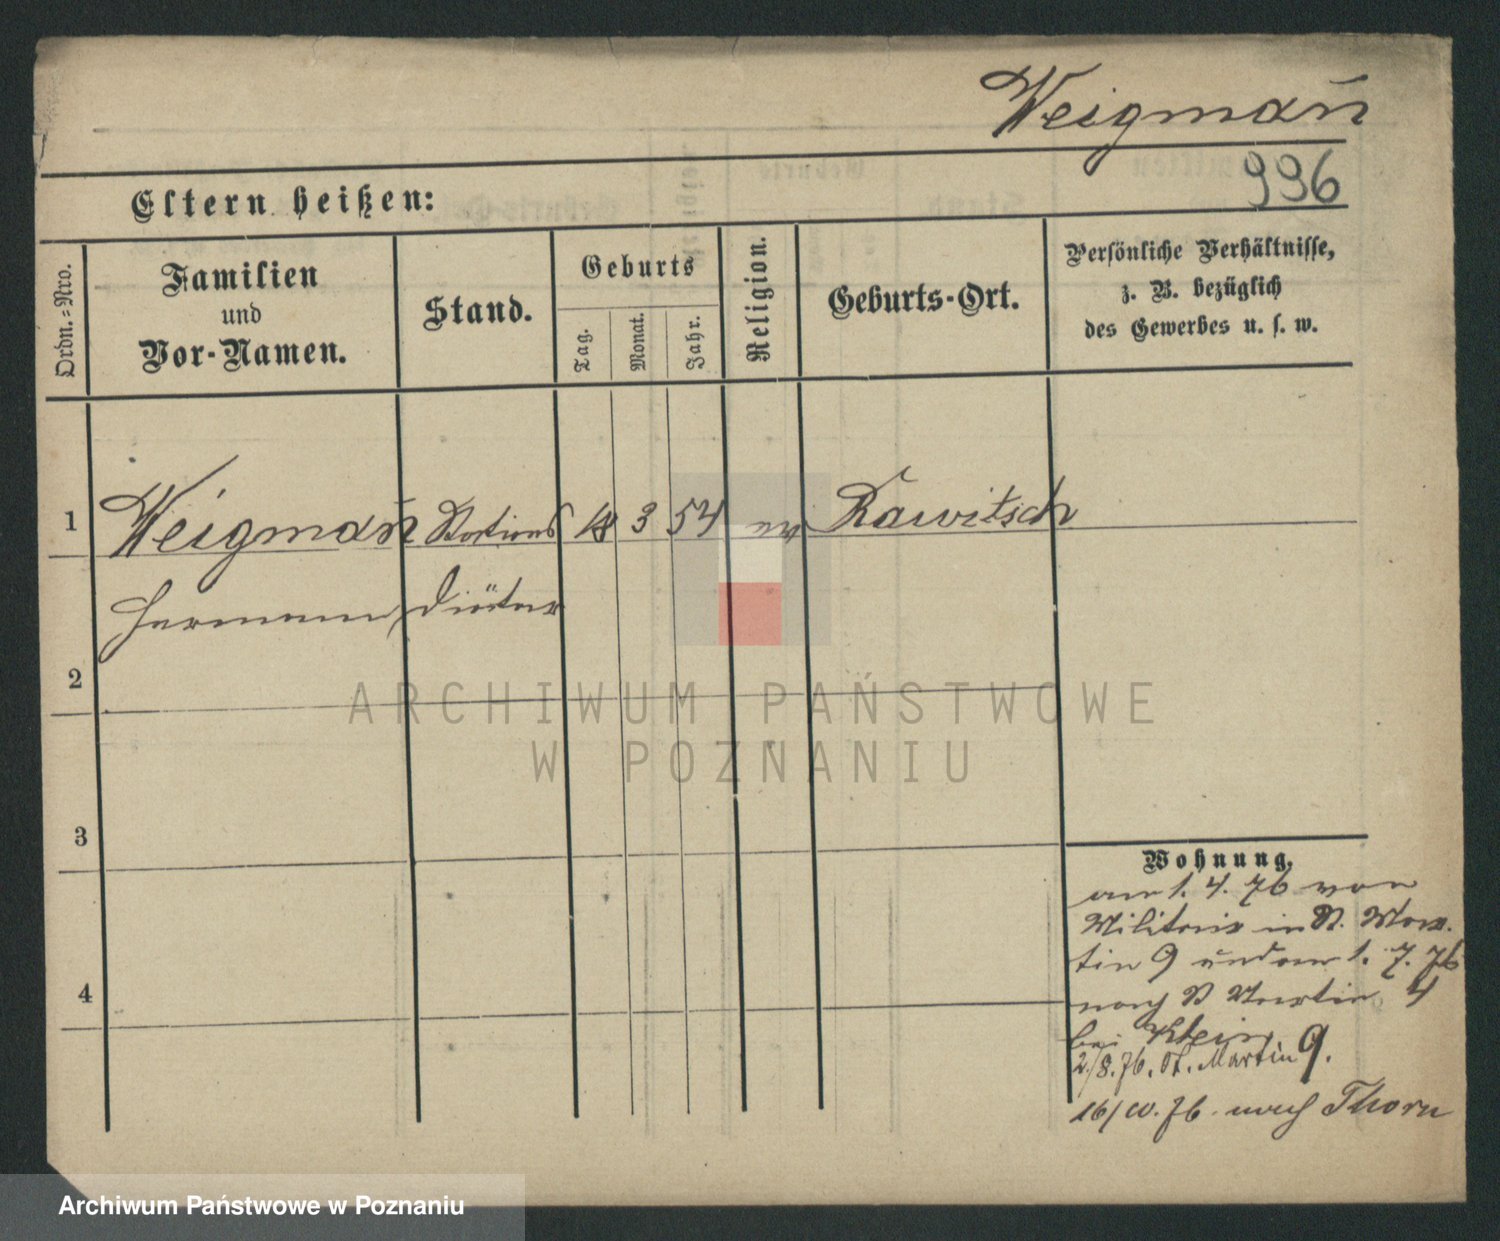 Weigmañ
996
Eltern heißen:
Ordn.-Nro.
Familien
und
Vor-Namen.
Stand.
Geburts
Tag.
Monat.
Jahr.
Religion.
Geburts-Ort.
Persönliche Verhältnisse,
z. B. bezüglich
des Gewerbes u. s. w.
1 Weigmañ Stations 18 3 54 ev Rawitsch
Hermann, Diätar
2
3
4
Wohnung.
am 1. 4. 76 von
Militair in St. Mar-
tin 9 und am 1. 7. 76
nach St Martin 4
bei Klein
2./8. 76. St. Martin 9.
16/10. 76. nach Thorn
ARCHIWUM PAŃSTWOWE
W POZNANIU
Archiwum Państwowe w Poznaniu